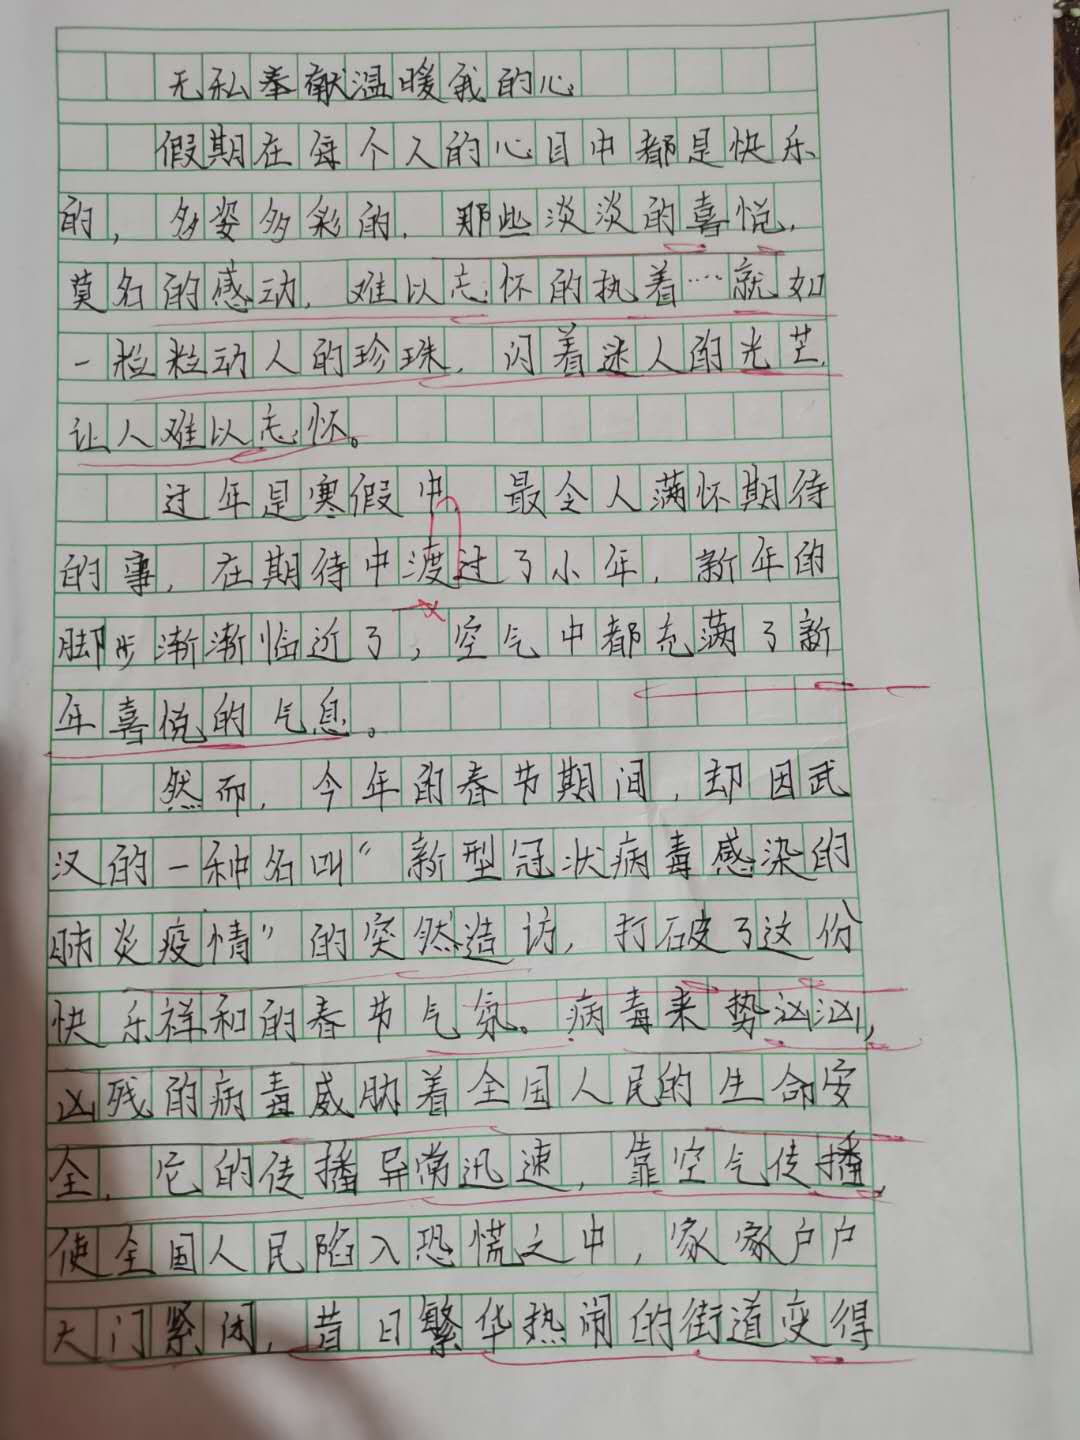 无私奉献温暖我的心
假期在每个人的心目中都是快乐
的，多姿多彩的，那些淡淡的喜悦，
莫名的感动，难以忘怀的执着…就如
一粒粒动人的珍珠，闪着迷人的光芒，
让人难以忘怀。
过年是寒假中，最令人满怀期待
的事，在期待中渡过了小年，新年的
脚步渐渐临近了，空气中都充满了新
年喜悦的气息。
然而，今年的春节期间，却因武
汉的一种名叫“新型冠状病毒感染的
肺炎疫情”的突然造访，打破了这份
快乐祥和的春节气氛。病毒来势汹汹，
凶残的病毒威胁着全国人民的生命安
全，它的传播异常迅速，靠空气传播，
使全国人民陷入恐慌之中，家家户户
大门紧闭，昔日繁华热闹的街道变得